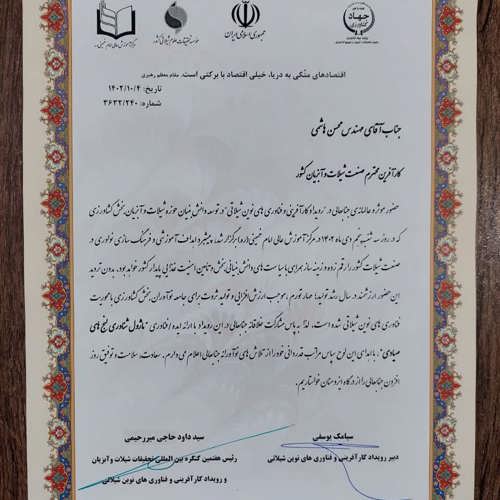 جهاد
کشاورزی
جمهوری اسلامی ایران
مؤسسه تحقیقات علوم شیلاتی کشور
اقتصادهای متکی به دریا، خیلی اقتصاد با برکتی است. مقام معظم رهبری
تاریخ: ۱۴۰۲/۱۰/۴
شماره: ۳۶۳۲/۲۴۰
جناب آقای مهندس محسن هاشمی
کارآفرین محترم صنعت شیلات و آبزیان کشور
حضور موثر و عالمانه‌ی جنابعالی در "رویداد کارآفرینی و فناوری های نوین شیلاتی" در توسعه دانش بنیان حوزه شیلات و آبزیان بخش کشاورزی
که در روز سه شنبه پنجم دی ماه ۱۴۰۲ در مرکز آموزش عالی امام خمینی(ره) برگزار شد، پیشبرد اهداف آموزشی و فرهنگ سازی نوآوری در
صنعت شیلات کشور را رقم زده و زمینه ساز همراهی با سیاست های دانش بنیانی بخش و تامین امنیت غذایی پایدار کشور خواهد بود. بدون تردید
این حضور ارزشمند در سال رشد تولید؛ مهار تورم، موجب ارزش افزایی و تولید ثروت برای جامعه نوآوران بخش کشاورزی با محوریت
فناوری های نوین شیلاتی شده است. لذا به پاس مشارکت خلاقانه جنابعالی در این رویداد با ارائه ایده / فناوری "ماژول شناوری لنج های
صیادی"، با اهدای این لوح سپاس مراتب قدردانی خود را از تلاش های نوآورانه جنابعالی اعلام می دارم. سعادت، سلامت و توفیق روز
افزون جنابعالی را از درگاه ایزد منان خواستاریم.
سیامک یوسفی
دبیر رویداد کارآفرینی و فناوری های نوین شیلاتی
سید داود حاجی میررحیمی
رئیس هفتمین کنگره بین المللی تحقیقات شیلات و آبزیان
و رویداد کارآفرینی و فناوری های نوین شیلاتی